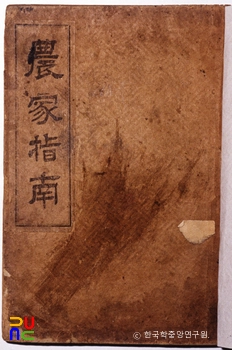 農家指南
PUNC
© 한국학중앙연구원